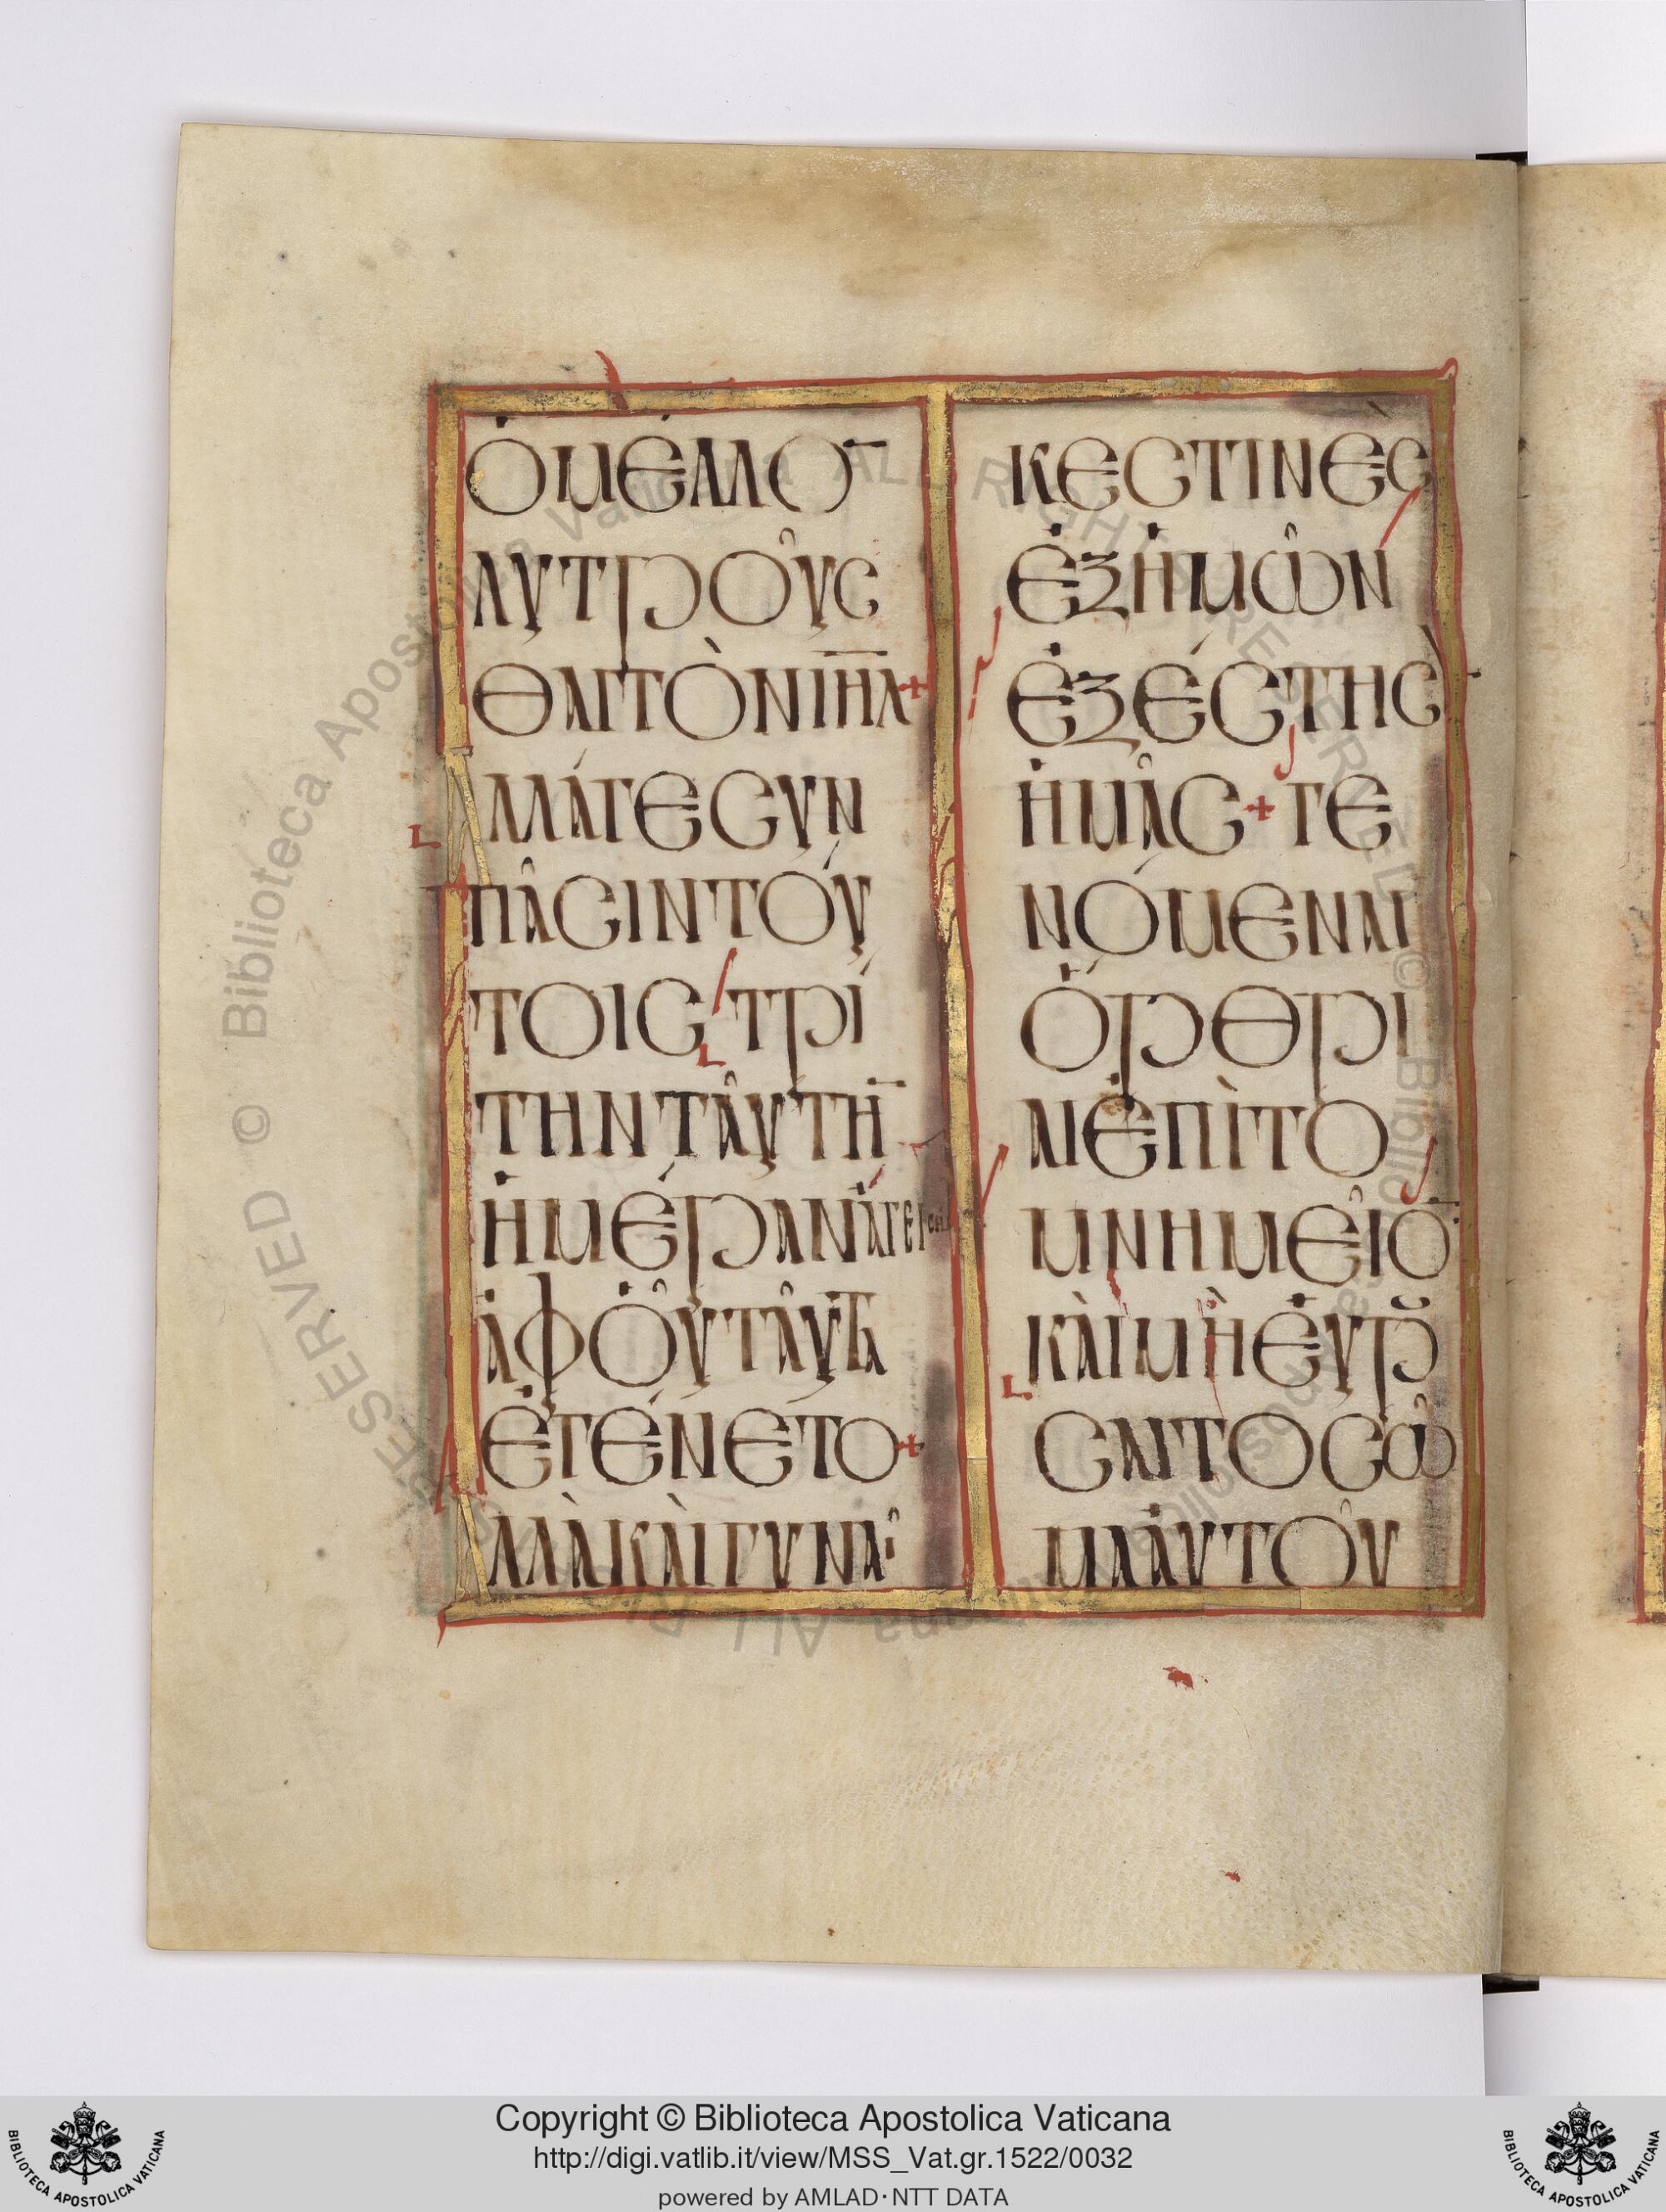 ὉΜΈΛΛΟ̄
ΛΥΤΡΟῦΣΘΑΙ
ΤῸΝ ΙΗ̄Λ+
ἈΛΛΆΓΕ ΣΥΝ
ΠᾶΣΙΝ ΤΟΎ
ΤΟΙΣ ΤΡΊ
ΤΗΝ ΤΑΎΤΗ̄
ἩΜΈΡΑΝ ἌΓΕΙ
ἈΦ ΟὟ ΤΑῦΤΑ
ἘΓΈΝΕΤΟ+
ἈΛΛᾺ ΚΑῚ ΓΥΝΑῖ
ΚΕΣ ΤΙΝῈΣ
ἘΞ ἩΜῶΝ
ἘΞΈΣΤΗΣᾺ
ἩΜᾶΣ+ ΓΕ
ΝΌΜΕΝΑΙ
ὌΡΘΡΙ
ΑΙ ἘΠῚ ΤΟ
ΜΝΗΜΕῖΟ̄
ΚΑῚ ΜῊ ἙΥΡΟῦ
ΣΑΙ ΤΟ ΣῶΜΑ
ἈΥΤΟῦ
Copyright © Biblioteca Apostolica Vaticana
http://digi.vatlib.it/view/MSS_Vat.gr.1522/0032
powered by AMLAD·NTT DATA
BIBLIOTECA APOSTOLICA VATICANA
BIBLIOTECA APOSTOLICA VATICANA